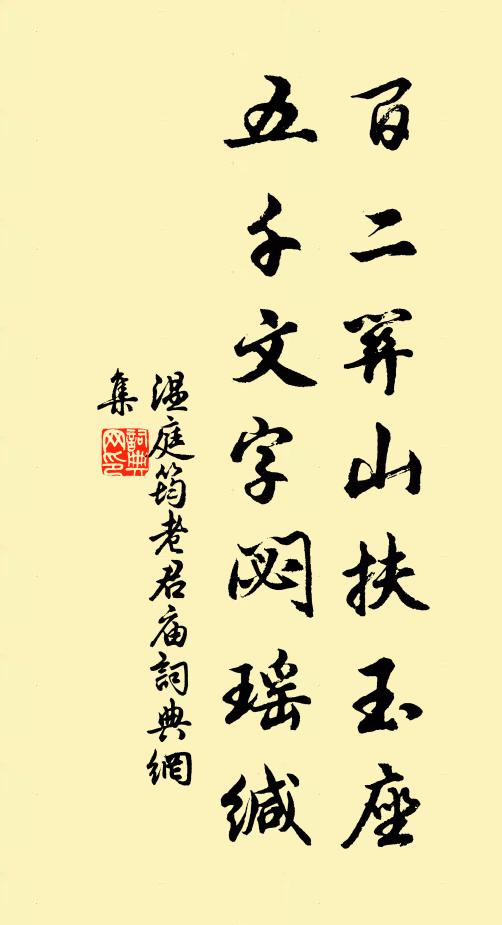 百二關山扶玉座
五千文字閟瑶緘
温庭筠老君庙詞典網
集
詞典網印